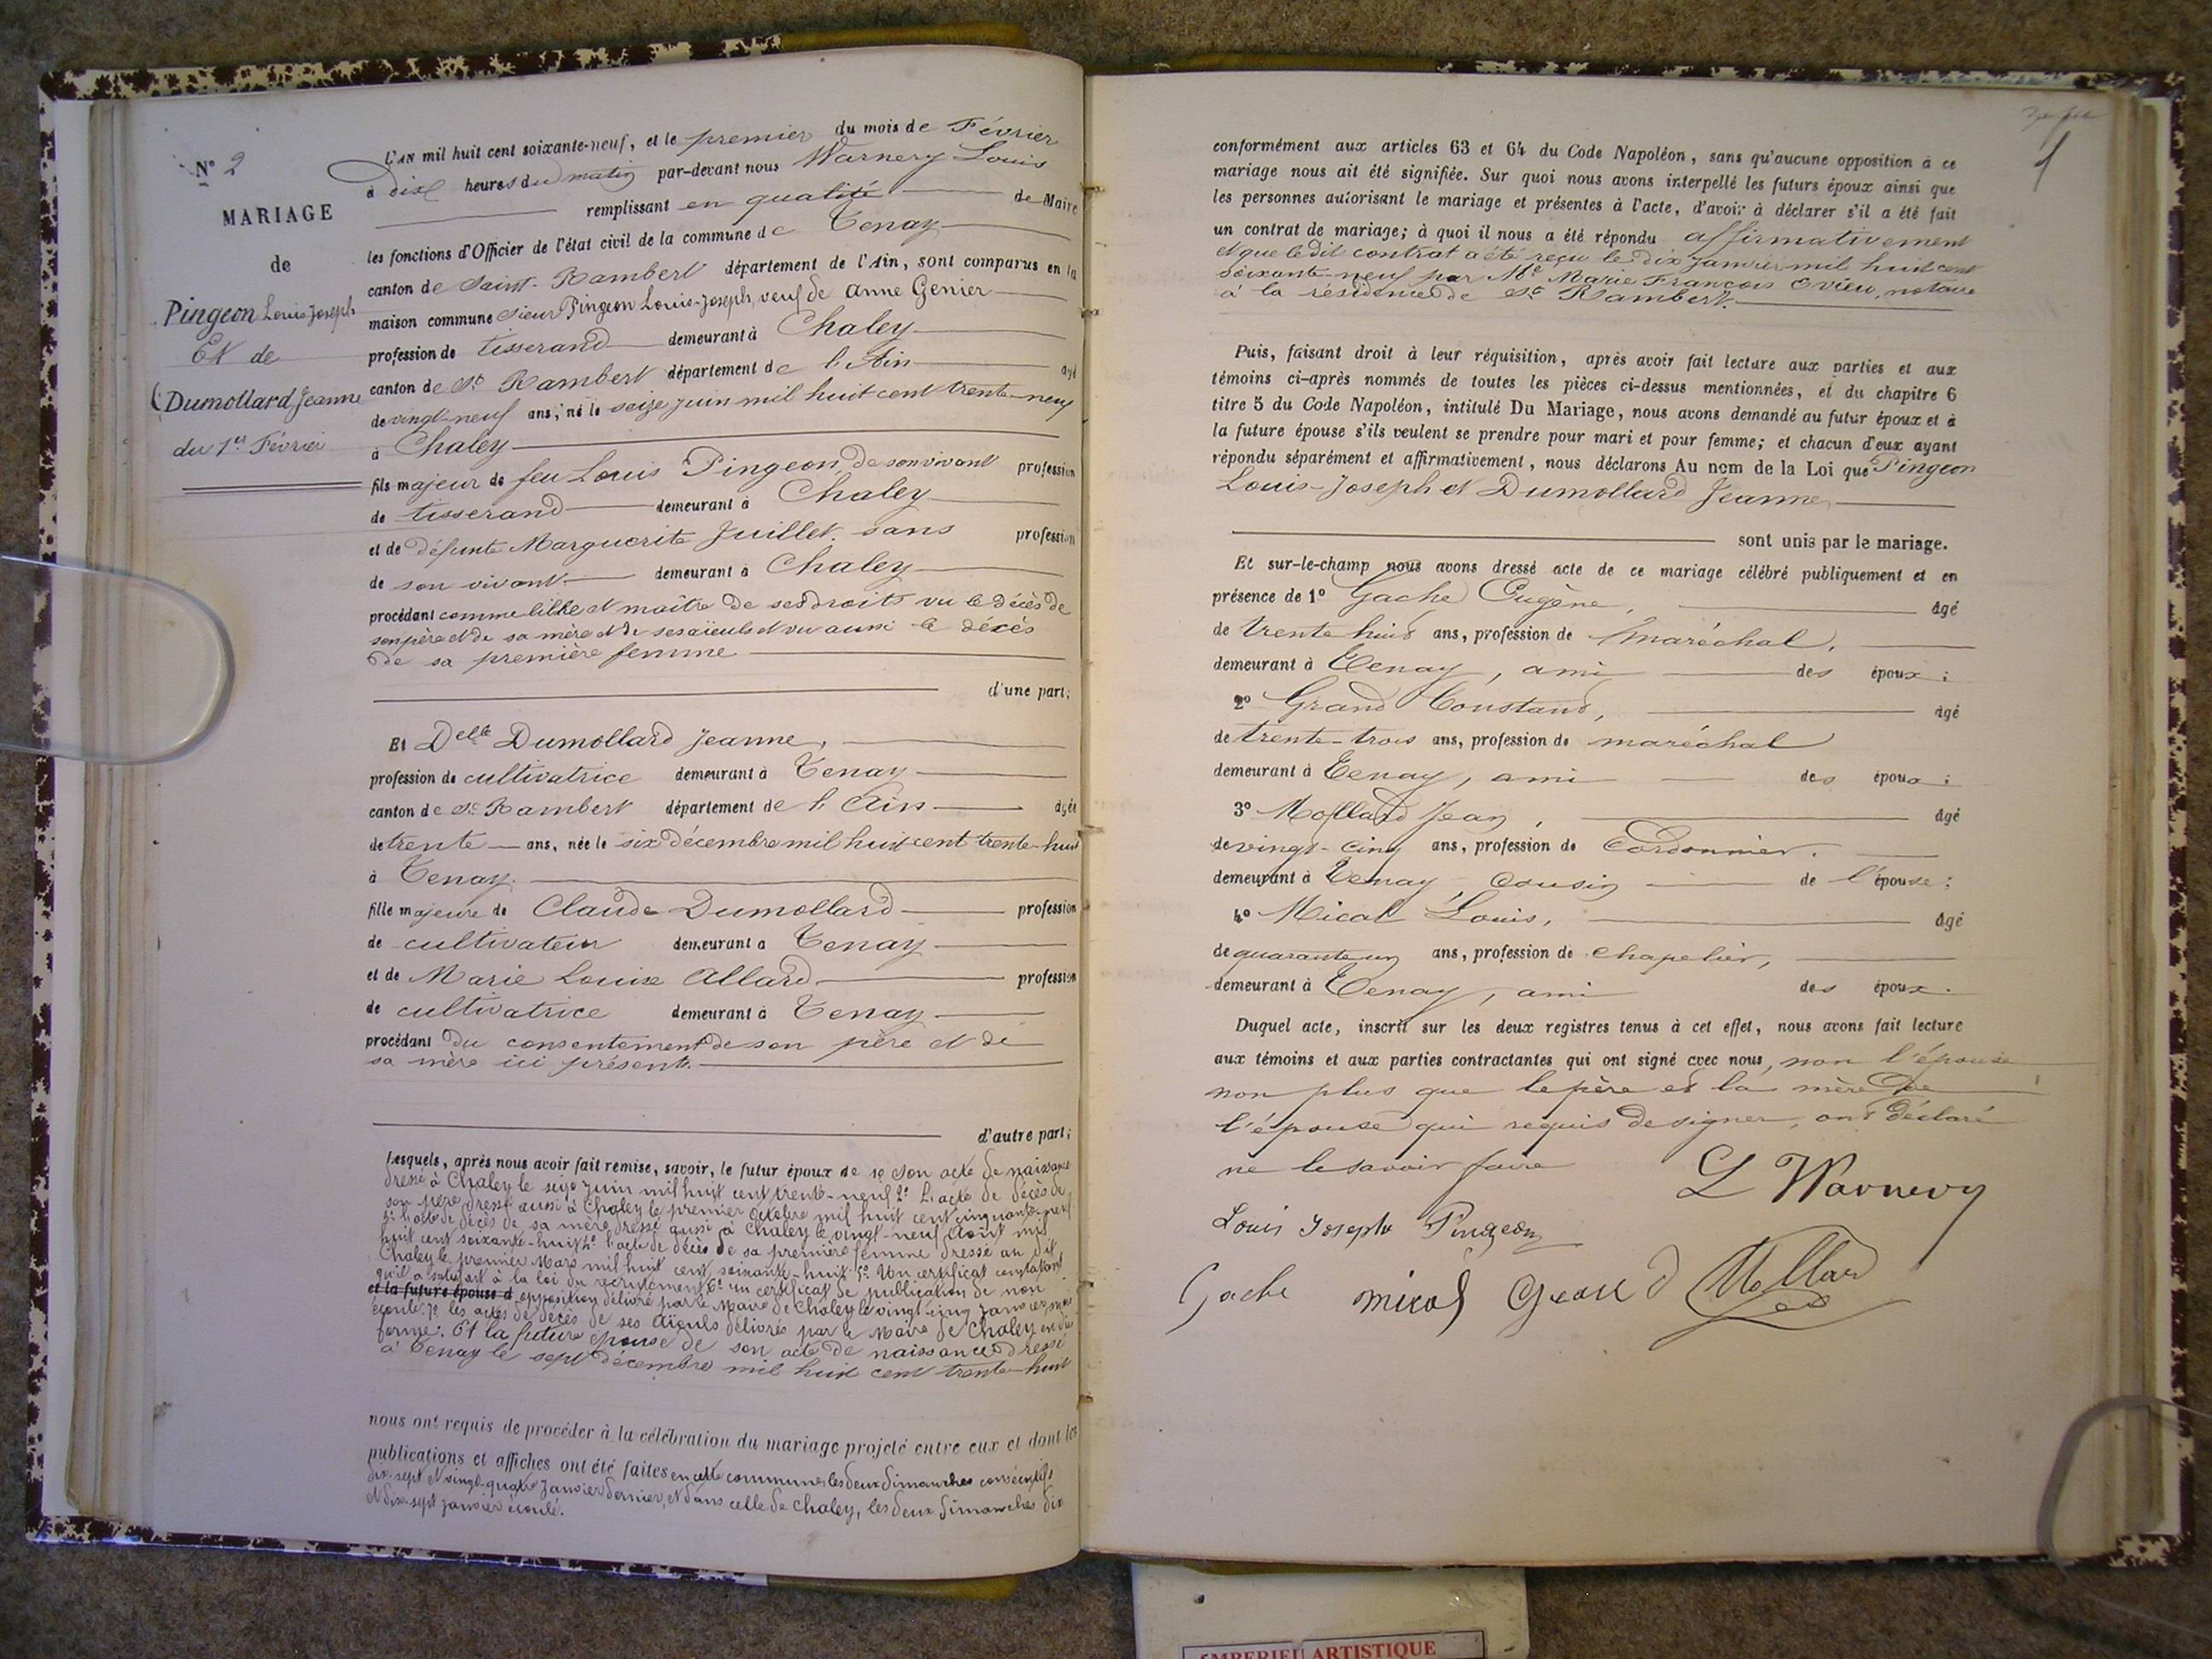 N° 2
MARIAGE
de
Pingeon Louis Joseph
Et de
Dumollard Jeanne
du 1er Février
L'AN mil huit cent soixante-neuf, et le premier du mois de Février
à dix heures du matin par-devant nous Warnery Louis
remplissant en qualité de Maire
les fonctions d'Officier de l'état civil de la commune de Tenay
canton de Saint-Rambert département de l'Ain, sont comparus en la
maison commune Sieur Pingeon Louis-Joseph, veuf de Anne Genier
profession de tisserand demeurant à Chaley
canton de St Rambert département de l'Ain agé
de vingt-neuf ans, né le seize juin mil huit cent trente-neuf
à Chaley
fils majeur de feu Louis Pingeon, de son vivant profession
de tisserand demeurant à Chaley
et de défunte Marguerite Juillet. sans profession
de son vivant demeurant à Chaley
procédant comme libre et maître de ses droits vu le décès de
son père et de sa mère et de ses aïeuls et vu aussi le décès
de sa première femme
d'une part;
Et Delle Dumollard Jeanne,
profession de cultivatrice demeurant à Tenay
canton de St Rambert département de l'Ain agée
de trente ans, née le six décembre mil huit cent trente-huit
à Tenay.
fille majeure de Claude Dumollard profession
de cultivateur demeurant à Tenay
et de Marie Louise Allard profession
de cultivatrice demeurant à Tenay
procédant du consentement de son père et de
sa mère ici présents.
d'autre part;
Lesquels, après nous avoir fait remise, savoir, le futur époux de 1º son acte de naissance
dressé à Chaley le seize Juin mil huit cent trente-neuf 2º L'acte de décès de
son père dressé aussi à Chaley le premier Octobre mil huit cent cinquante-neuf
3º l'acte de décès de sa mère dressé aussi à Chaley le vingt-neuf Août mil
huit cent soixante-huit 4º l'acte de décès de sa première femme dressé au dit
Chaley le premier Mars mil huit cent soixante-huit 5º Un certificat constatant
qu'il a satisfait à la loi du recrutement 6º un certificat de publication de non
et la future épouse d opposition délivré par le Maire de Chaley le vingt-cinq Janvier mois
écoulé. 7º les actes de décès de ses Aïeuls délivrés par le Maire de Chaley en due
forme. Et la future épouse de son acte de naissance dressé
à Tenay le sept décembre mil huit cent trente-huit
nous ont requis de procéder à la célébration du mariage projeté entre eux et dont les
publications et affiches ont été faites en cette commune les deux dimanches consécutifs
dix-sept et vingt-quatre Janvier dernier, et dans celle de Chaley, les deux dimanches dix
et dix-sept janvier écoulé.
1
conformément aux articles 63 et 64 du Code Napoléon, sans qu'aucune opposition à ce
mariage nous ait été signifiée. Sur quoi nous avons interpellé les futurs époux ainsi que
les personnes autorisant le mariage et présentes à l'acte, d'avoir à déclarer s'il a été fait
un contrat de mariage; à quoi il nous a été répondu affirmativement
et que le dit contrat a été reçu le dix janvier mil huit cent
soixante-neuf par Me Marie François Evieu, notaire
à la résidence de St Rambert.
Puis, faisant droit à leur réquisition, après avoir fait lecture aux parties et aux
témoins ci-après nommés de toutes les pièces ci-dessus mentionnées, et du chapitre 6
titre 5 du Code Napoléon, intitulé Du Mariage, nous avons demandé au futur époux et à
la future épouse s'ils veulent se prendre pour mari et pour femme; et chacun d'eux ayant
répondu séparément et affirmativement, nous déclarons Au nom de la Loi que Pingeon
Louis-Joseph et Dumollard Jeanne
sont unis par le mariage.
Et sur-le-champ nous avons dressé acte de ce mariage célébré publiquement et en
présence de 1º Gache Eugène, âgé
de trente huit ans, profession de maréchal,
demeurant à Tenay, ami des époux;
2º Grand Constand, âgé
de trente-trois ans, profession de maréchal
demeurant à Tenay, ami des époux;
3º Mollard Jean, âgé
de vingt-cinq ans, profession de Cordonnier.
demeurant à Tenay, cousin de l'épouse;
4º Mical Louis, âgé
de quarante un ans, profession de chapelier,
demeurant à Tenay, ami des époux.
Duquel acte, inscrit sur les deux registres tenus à cet effet, nous avons fait lecture
aux témoins et aux parties contractantes qui ont signé avec nous, non l'épouse
non plus que le père et la mère de
l'épouse qui requis de signer, ont déclaré
ne le savoir faire
L Warnery
Louis Joseph Pingeon
Gache mical Grand Mollard
AMBERIEU ARTISTIQUE